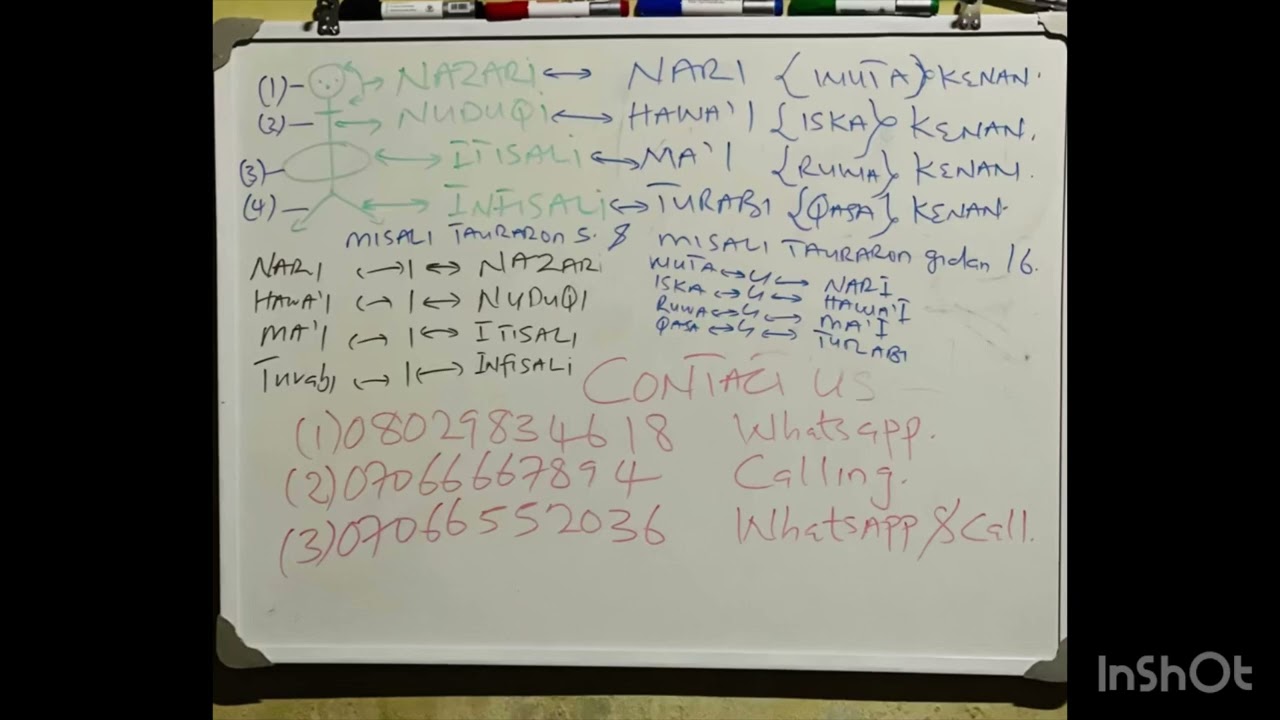 (1) NAZARI ↔ NARI {WUTA} KENAN.
(2) NUDUQI ↔ HAWA'I {ISKA} KENAN.
(3) ITISALI ↔ MA'I {RUWA} KENAN.
(4) INFISALI ↔ TURABI {QASA} KENAN.
MISALI TAURARON S. 8
NARI ↔ | ↔ NAZARI
HAWA'I ↔ | ↔ NUDUQI
MA'I ↔ | ↔ ITISALI
Turabi ↔ | ↔ INFISALI
MISALI TAURARON gidan 16.
WUTA ↔ 4 ↔ NARI
ISKA ↔ 4 ↔ HAWA'I
RUWA ↔ 4 ↔ MA'I
QASA ↔ 4 ↔ TURABI
CONTACT US
(1) 08029834618 Whatsapp.
(2) 07066667894 Calling.
(3) 07066552036 WhatsApp & Call.
InShOt